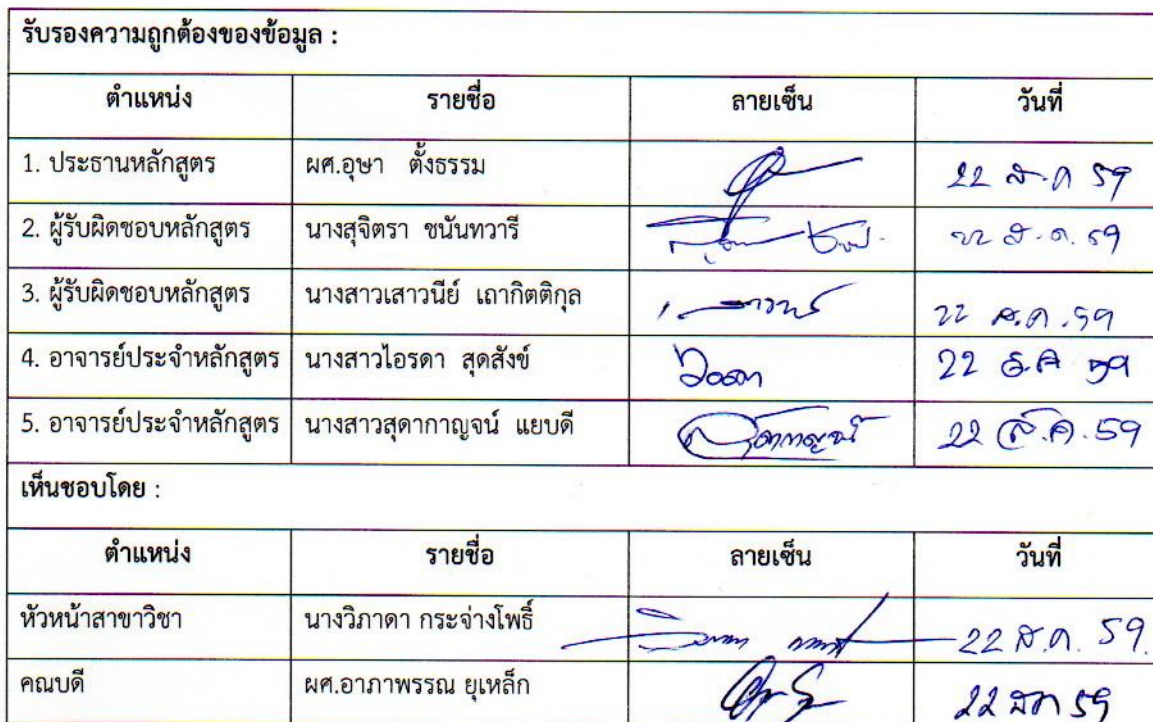 รับรองความถูกต้องของข้อมูล :
ตำแหน่ง รายชื่อ ลายเซ็น วันที่
1. ประธานหลักสูตร ผศ.อุษา ตั้งธรรม 22 ส.ค 59
2. ผู้รับผิดชอบหลักสูตร นางสุจิตรา ชนันทวารี 22 ส.ค. 59
3. ผู้รับผิดชอบหลักสูตร นางสาวเสาวนีย์ เถากิตติกุล 22 ส.ค.59
4. อาจารย์ประจำหลักสูตร นางสาวไอรดา สุดสังข์ ไอรดา 22 ส.ค 59
5. อาจารย์ประจำหลักสูตร นางสาวสุดากาญจน์ แยบดี สุดากาญจน์ 22 ส.ค.59
เห็นชอบโดย :
ตำแหน่ง รายชื่อ ลายเซ็น วันที่
หัวหน้าสาขาวิชา นางวิภาดา กระจ่างโพธิ์ 22 ส.ค. 59.
คณบดี ผศ.อาภาพรรณ ยุเหล็ก 22 สค 59